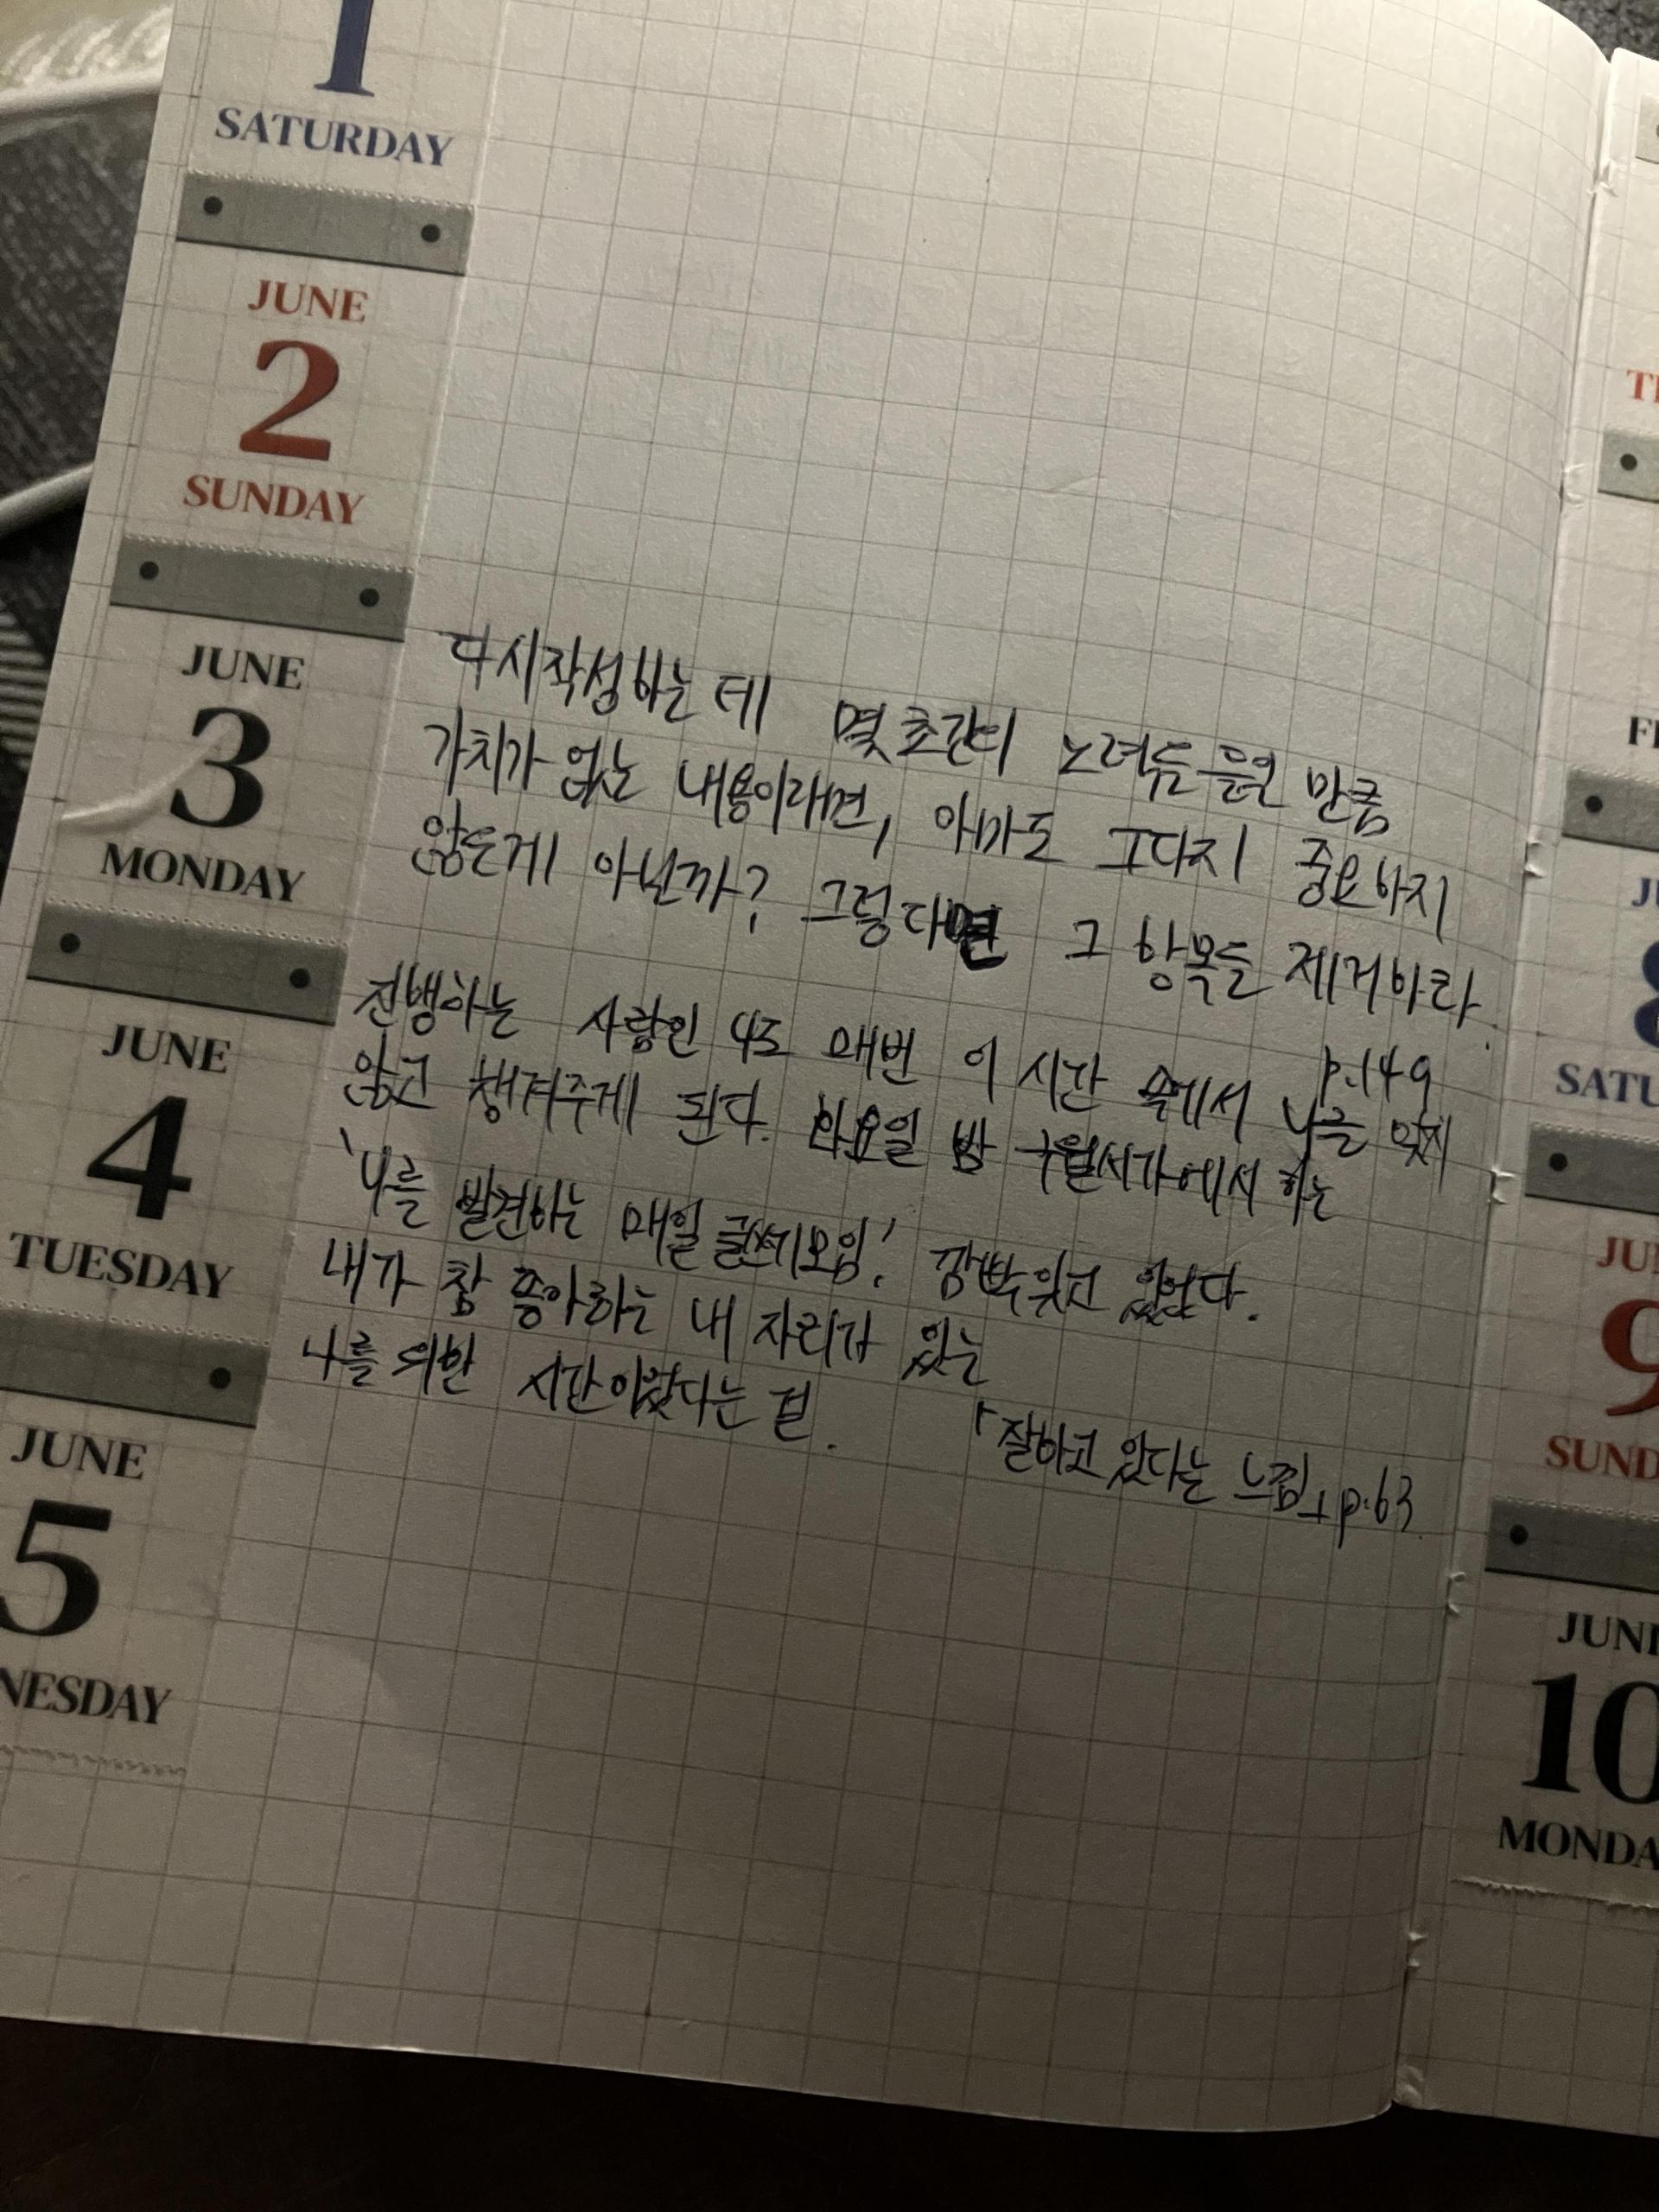 1
SATURDAY
JUNE
2
SUNDAY
JUNE
3
MONDAY
다시 작성하는 데 몇 초간의 노력을 들일 만큼
가치가 없는 내용이라면, 아마도 그다지 중요하지
않은게 아닌까? 그렇다면 그 항목들 제거하라.
p.149
JUNE
4
TUESDAY
진행하는 사람인 나도 매번 이 시간 속에서 나를 잊지
않고 챙겨주게 된다. 화요일 밤 구월서가에서 하는
'나를 발견하는 매일 글쓰기모임.' 깜빡 잊고 있었다.
내가 참 좋아하는 내 자리가 있는
나를 위한 시간이었다는 걸.
「잘하고 있다는 느낌」 p.63
JUNE
5
NESDAY
8
SATU
9
SUND
JUN
10
MONDA